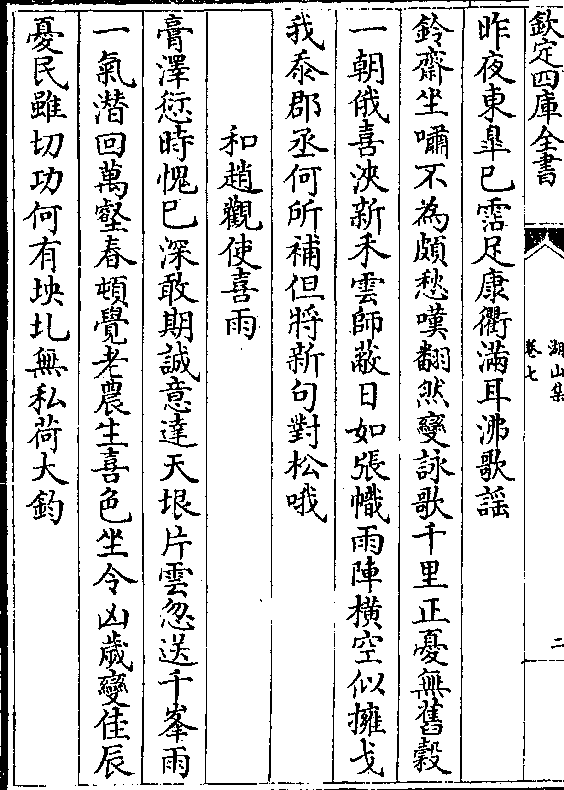 欽定四庫全書
湖山集
卷七
二
昨夜東臯已霑足康衢滿耳沸歌謡
鈴齋坐嘯不為頗愁嘆翻然變詠歌千里正憂無舊穀
一朝俄喜浹新禾雲師蔽日如張幟雨陣横空似擁戈
我忝郡丞何所補但將新句對松哦
和趙觀使喜雨
膏澤愆時愧已深敢期誠意達天垠片雲忽送千峯雨
一氣潛回萬壑春頓覺老農生喜色坐令凶歲變佳辰
憂民雖切功何有坱圠無私荷大鈞